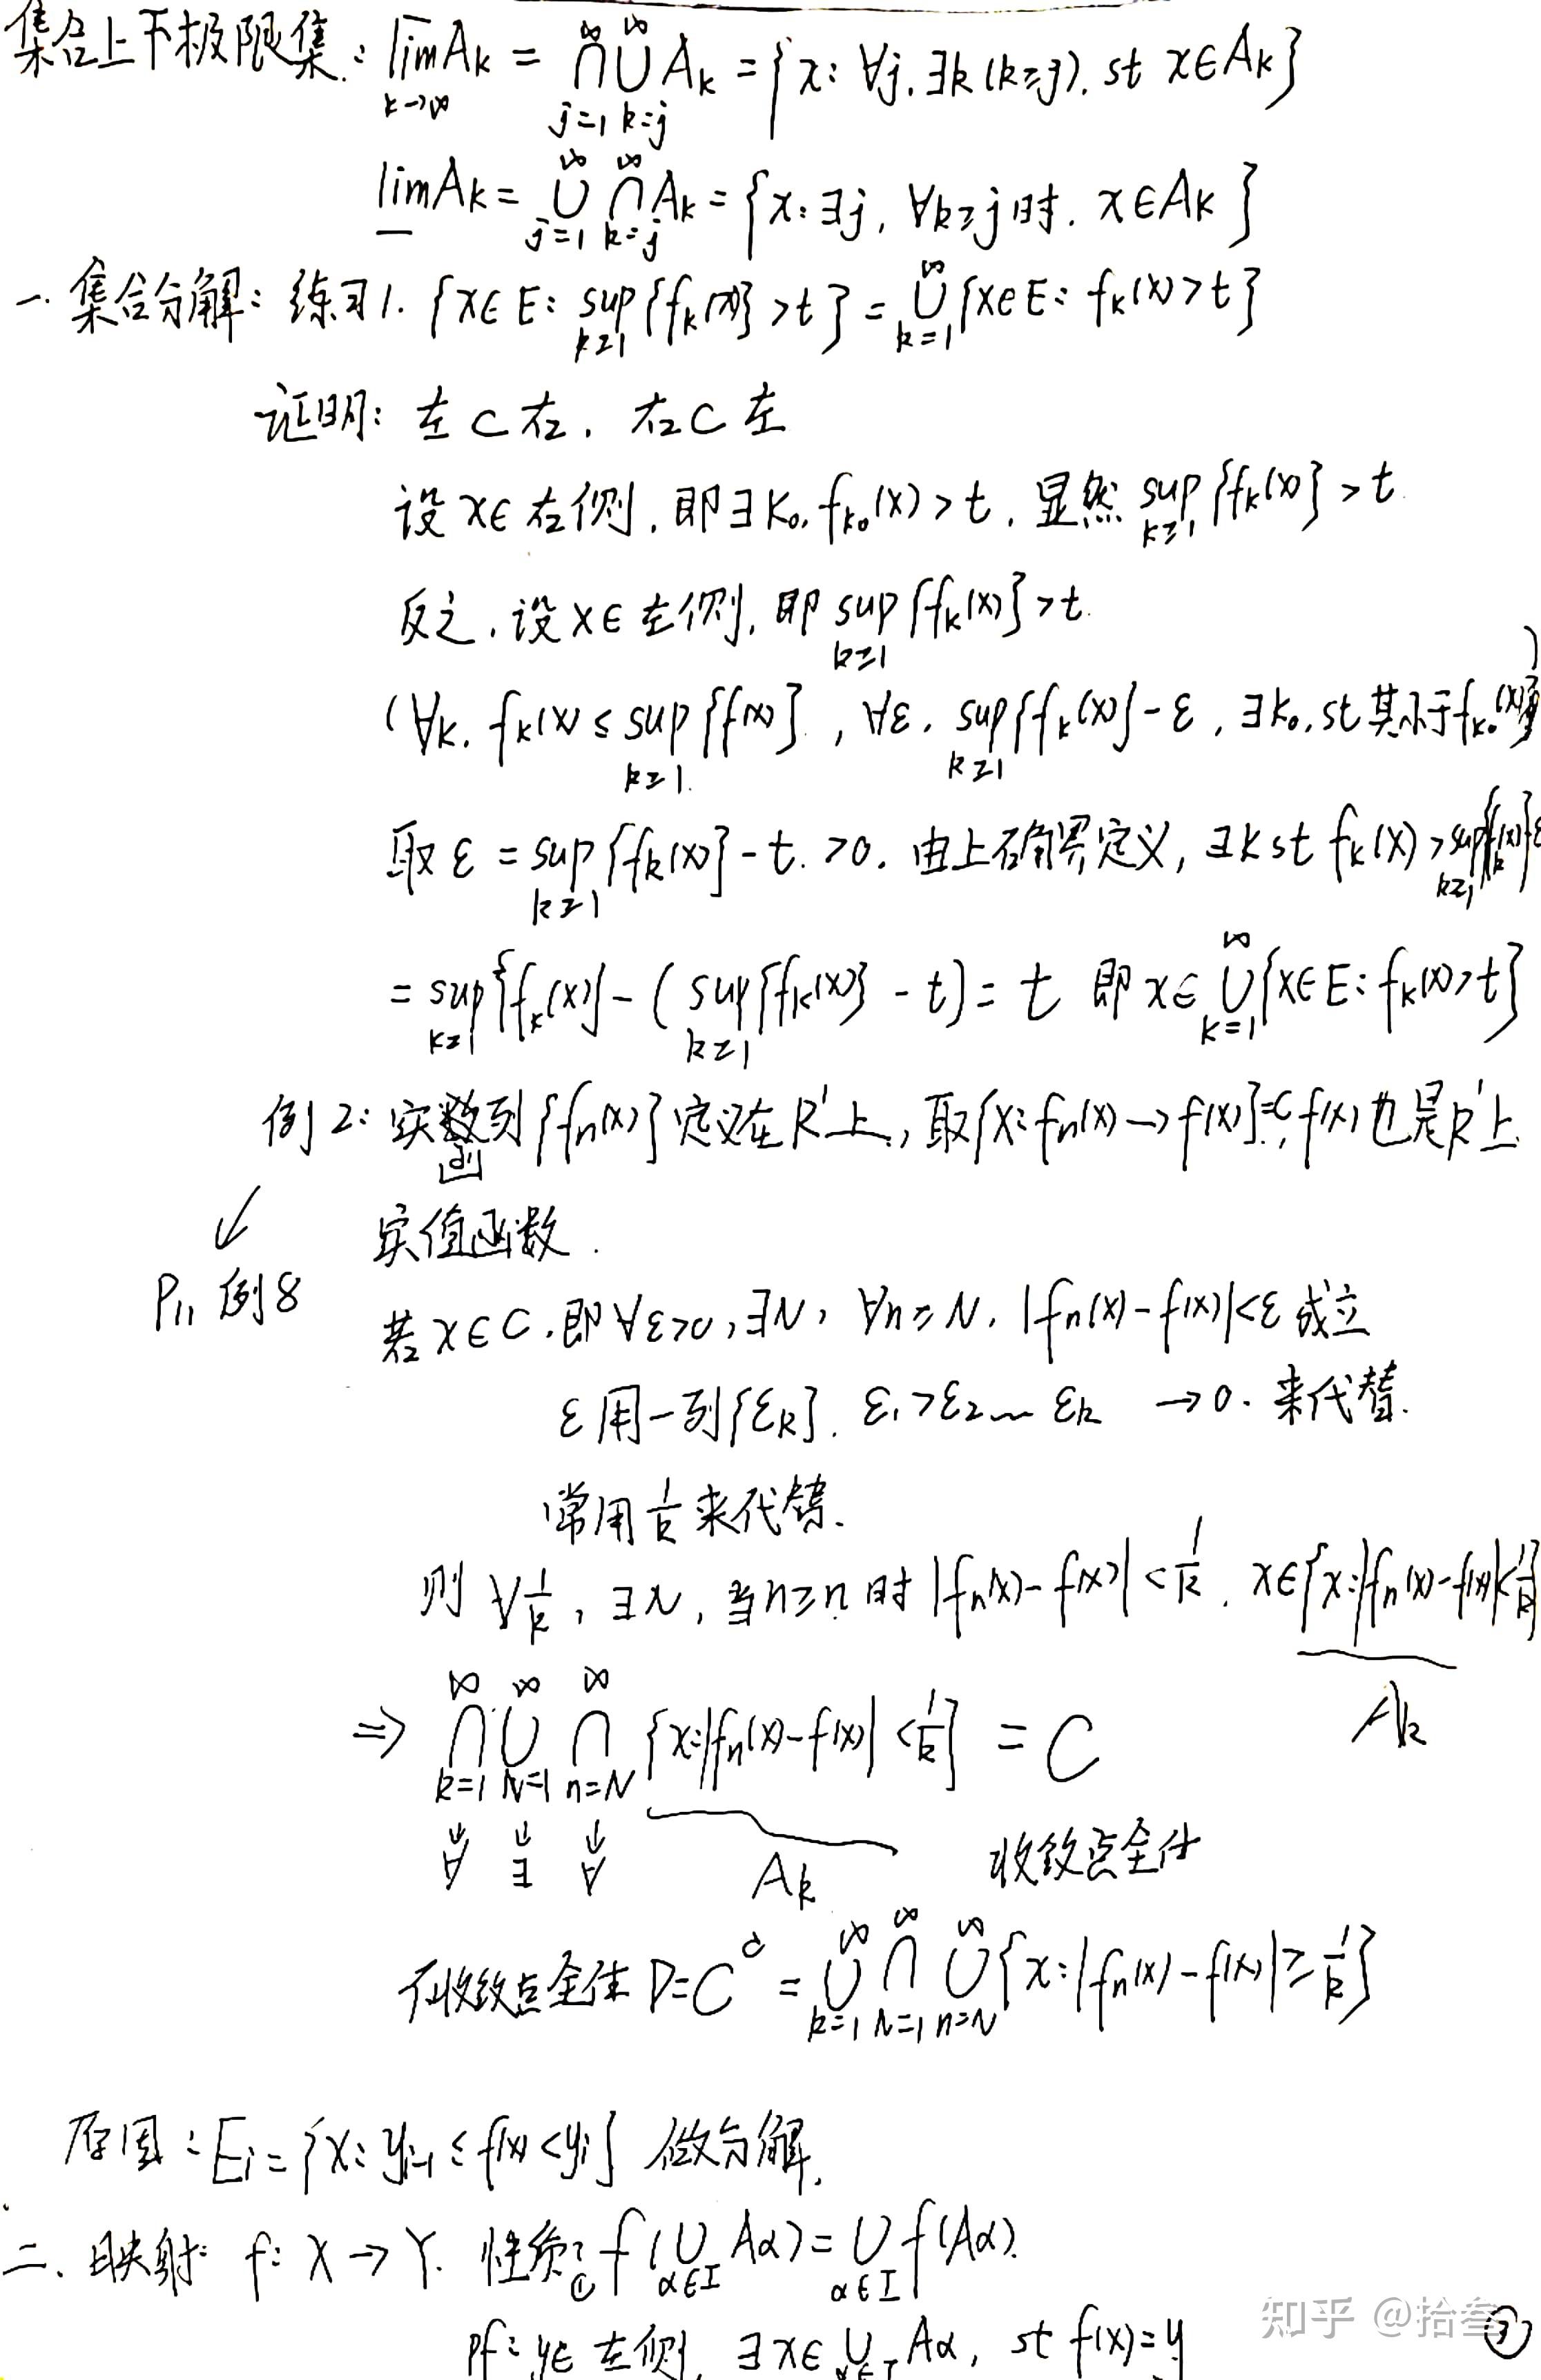 集合上下极限集: \overline{lim}_{k→∞} A_k = ⋂_{j=1}^∞ ⋃_{k=j}^∞ A_k = {x: ∀j, ∃k(k≥j), st x∈A_k}
\underline{lim} A_k = ⋃_{j=1}^∞ ⋂_{k=j}^∞ A_k = {x: ∃j, ∀k≥j时, x∈A_k}
一. 集合分解: 练习1. {x∈E: sup_{k≥1}{f_k(x)} >t} = ⋃_{k=1}^∞ {x∈E: f_k(x)>t}
证明: 左⊂右, 右⊂左
设x∈右侧, 即∃k₀, f_{k₀}(x)>t, 显然 sup_{k≥1}{f_k(x)}>t
反之, 设x∈左侧, 即 sup_{k≥1}{f_k(x)}>t.
(∀k, f_k(x)≤sup_{k≥1}{f(x)}, ∀ε, sup_{k≥1}{f_k(x)}-ε, ∃k₀, st其小于f_{k₀}(x))
取ε=sup_{k≥1}{f_k(x)}-t>0, 由上确界定义, ∃k st f_k(x)>sup_{k≥1}{f_k(x)}-ε
=sup_{k≥1}{f_k(x)}-(sup_{k≥1}{f_k(x)}-t)=t 即x∈⋃_{k=1}^∞{x∈E: f_k(x)>t}
例2: 实函数列{f_n(x)}定义在R¹上, 取{x: f_n(x)→f(x)}=C, f(x)也是R¹上
实值函数.
P₁₁ 例8
若x∈C, 即∀ε>0, ∃N, ∀n≥N, |f_n(x)-f(x)|<ε成立
ε用一列{ε_k}, ε₁>ε₂… ε_k →0. 来代替.
常用 1/k 来代替.
则∀1/k, ∃N, 当n≥n时|f_n(x)-f(x)|<1/k, x∈{x:|f_n(x)-f(x)|<1/k}
A_k
⇒ ⋂_{k=1}^∞ ⋃_{N=1}^∞ ⋂_{n=N}^∞ {x:|f_n(x)-f(x)|<1/k} = C
∀ ∃ ∀ A_k 收敛点全体
不收敛点全体 D=C^c = ⋃_{k=1}^∞ ⋂_{N=1}^∞ ⋃_{n=N}^∞ {x:|f_n(x)-f(x)|≥1/k}
原因: E_i={x: y_{i-1}≤f(x)<y_i} 做分解.
二. 映射: f: X→Y. 性质: ① f(⋃_{α∈I} Aα)=⋃_{α∈I} f(Aα).
pf: y∈左侧, ∃x∈⋃_{α∈I} Aα, st f(x)=y
知乎 @拾叁
③